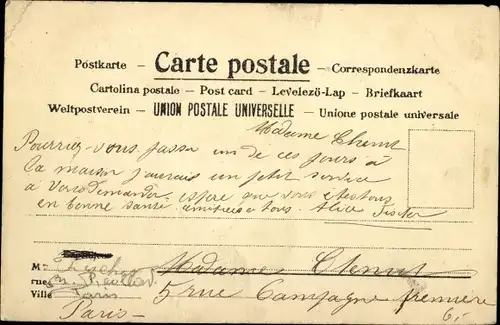 Postkarte – Carte postale – Correspondenzkarte
Cartolina postale – Post card – Levelező-Lap – Briefkaart
Weltpostverein – UNION POSTALE UNIVERSELLE – Unione postale universale
Madame
Pourriez-vous passer un de ces jours à
la maison j'aurais un petit service
a Vous demander espere que vous etes tous
en bonne santé amities a tous. Alice Fischer
M
Fischer Madame
rue
Ville Paris 5 rue Campagne première
Paris –
6,-